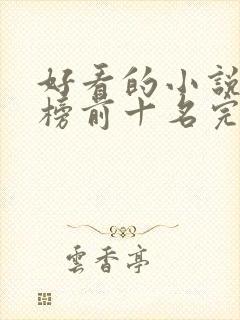 好看的小說
榜前十名完
雲香亭